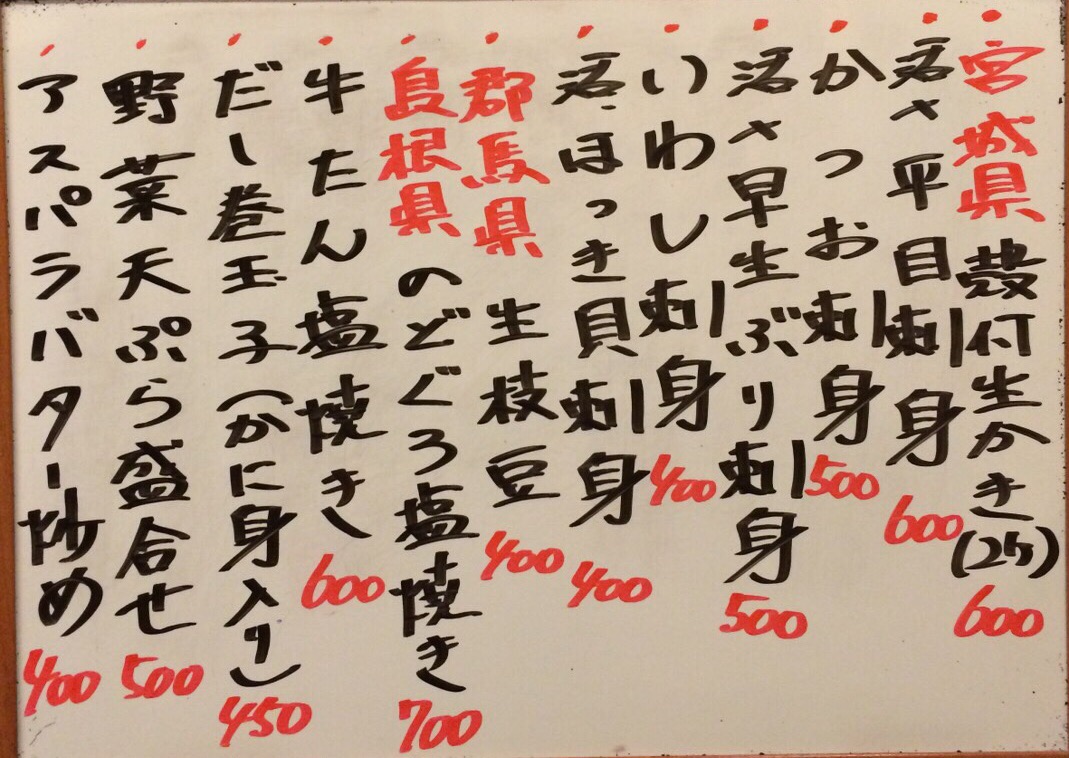 宮城県 殻付生かき(2ケ) 600
活〆平目刺身 600
かつお刺身 500
活〆早生ぶり刺身 500
いわし刺身 400
活ほっき貝刺身 400
郡馬県 生枝豆 400
島根県 のどぐろ塩焼き 700
牛たん塩焼き 600
だし巻玉子(かに身入り) 450
野菜天ぷら盛合せ 500
アスパラバター炒め 400